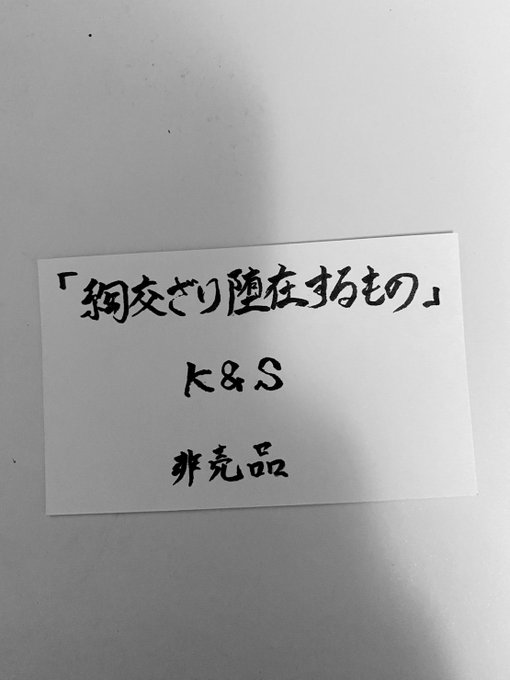 「綱交ざり堕在するもの」
K&S
非売品